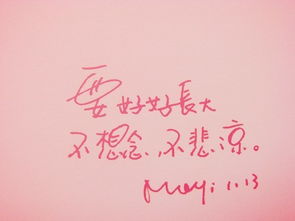 要好好長大
不想念、不悲涼。
May: 1.13